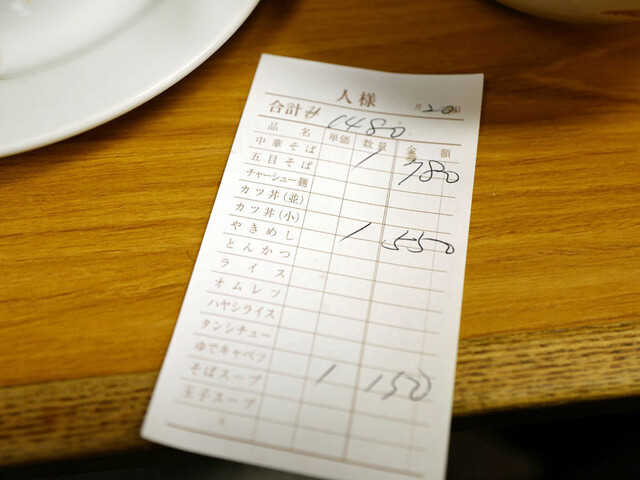 人様
月20日
合計 ¥1480
品名 単価 数量 金額
中華そば 1 780
五目そば
チャーシュー麺
カツ丼(並)
カツ丼(小)
やきめし 1 550
とんかつ
ライス
オムレツ
ハヤシライス
タンシチュー
ゆでキャベツ
そばスープ 1 150
玉子スープ